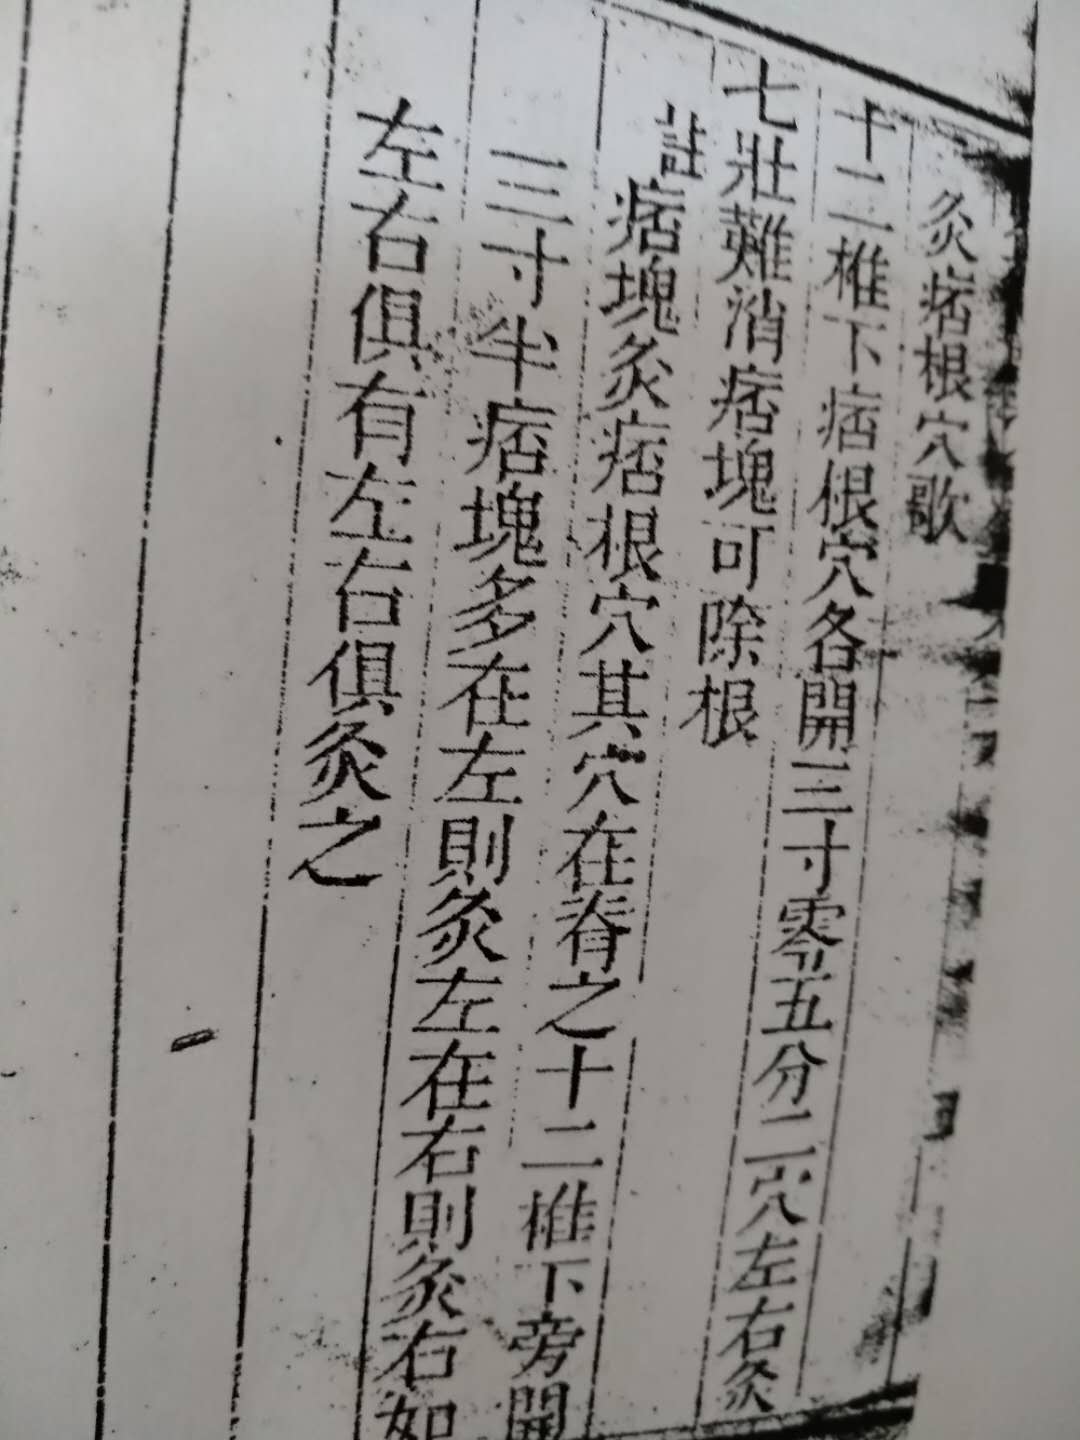 灸痞根穴歌
十二椎下痞根穴各開三寸零五分二穴左右灸
七壯難消痞塊可除根
註痞塊灸痞根穴其穴在脊之十二椎下旁開
三寸半痞塊多在左則灸左在右則灸右如
左右俱有左右俱灸之